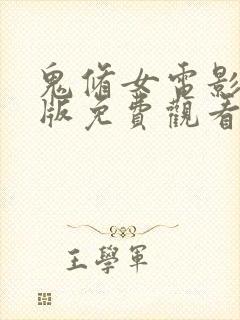 鬼脩女電影
版免費觀看
王學軍